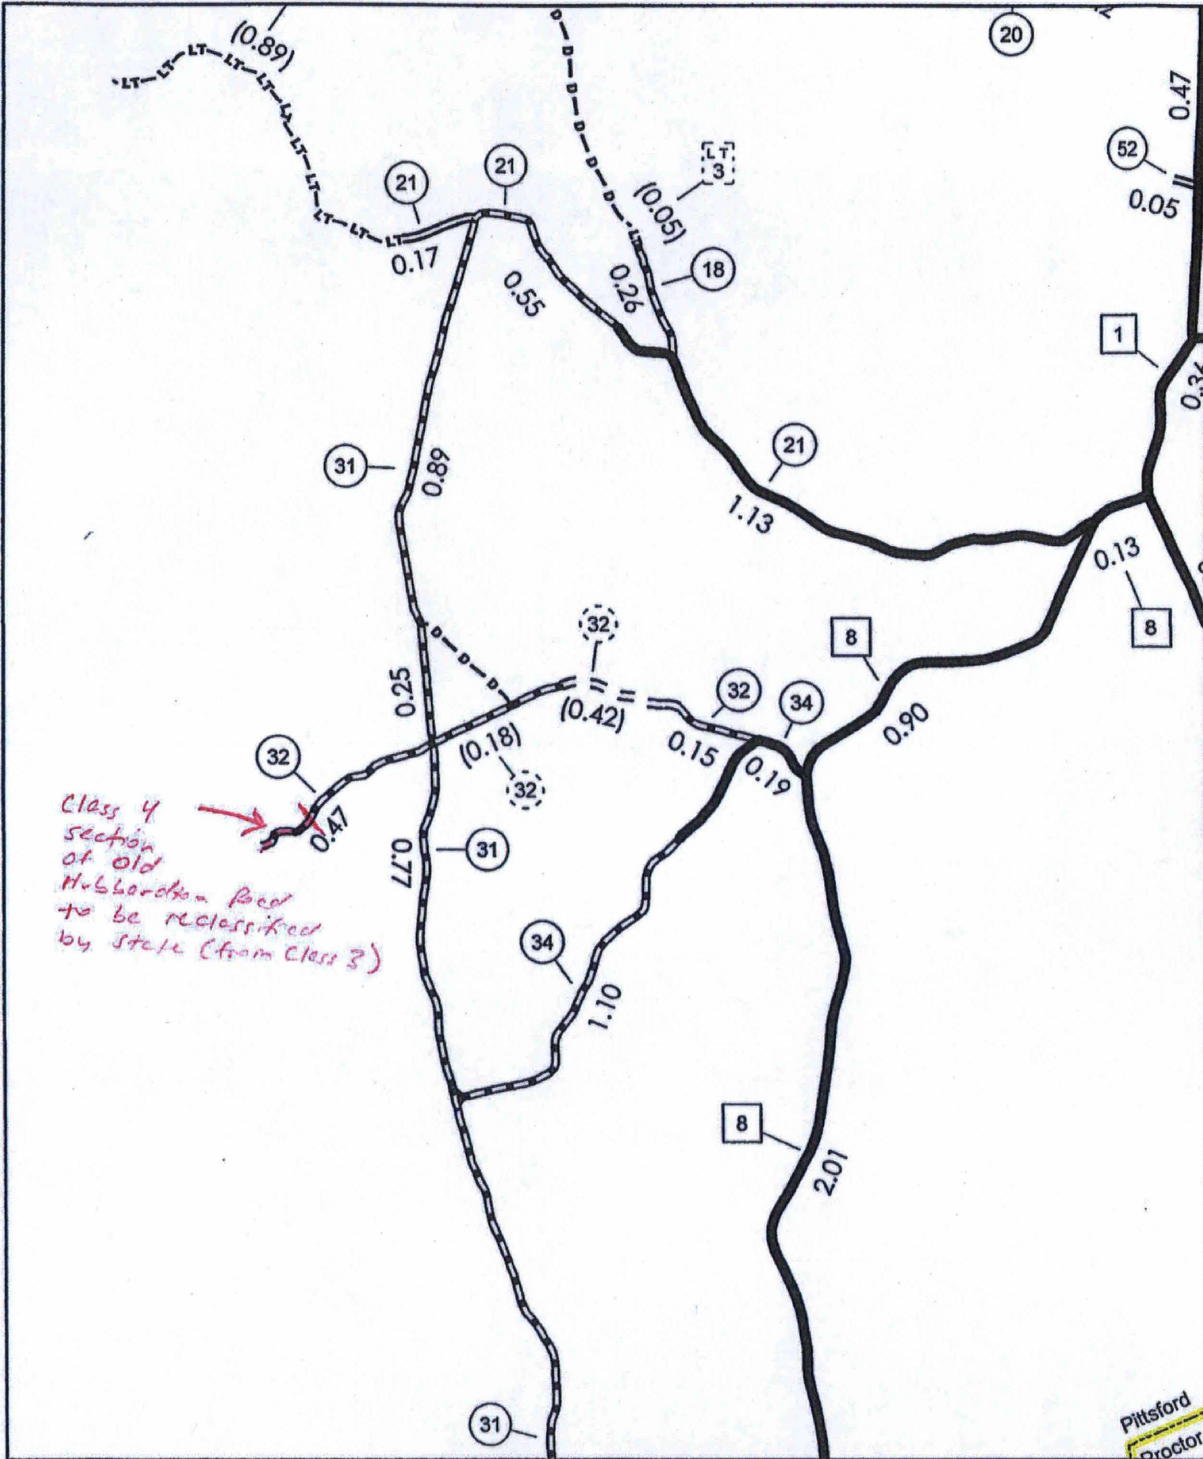 (0.89)
20
0.47
52
0.05
LT
3
(0.05)
21
21
0.17
18
0.26
0.55
1
0.36
31
0.89
21
1.13
0.13
8
32
8
0.25
32
34
(0.42)
0.90
(0.18)
0.15
0.19
32
32
0.47
Class 4
section
of Old
Hubbardton Road
to be reclassified
by State (from Class 3)
0.77
31
34
1.10
8
2.01
31
Pittsford
Proctor